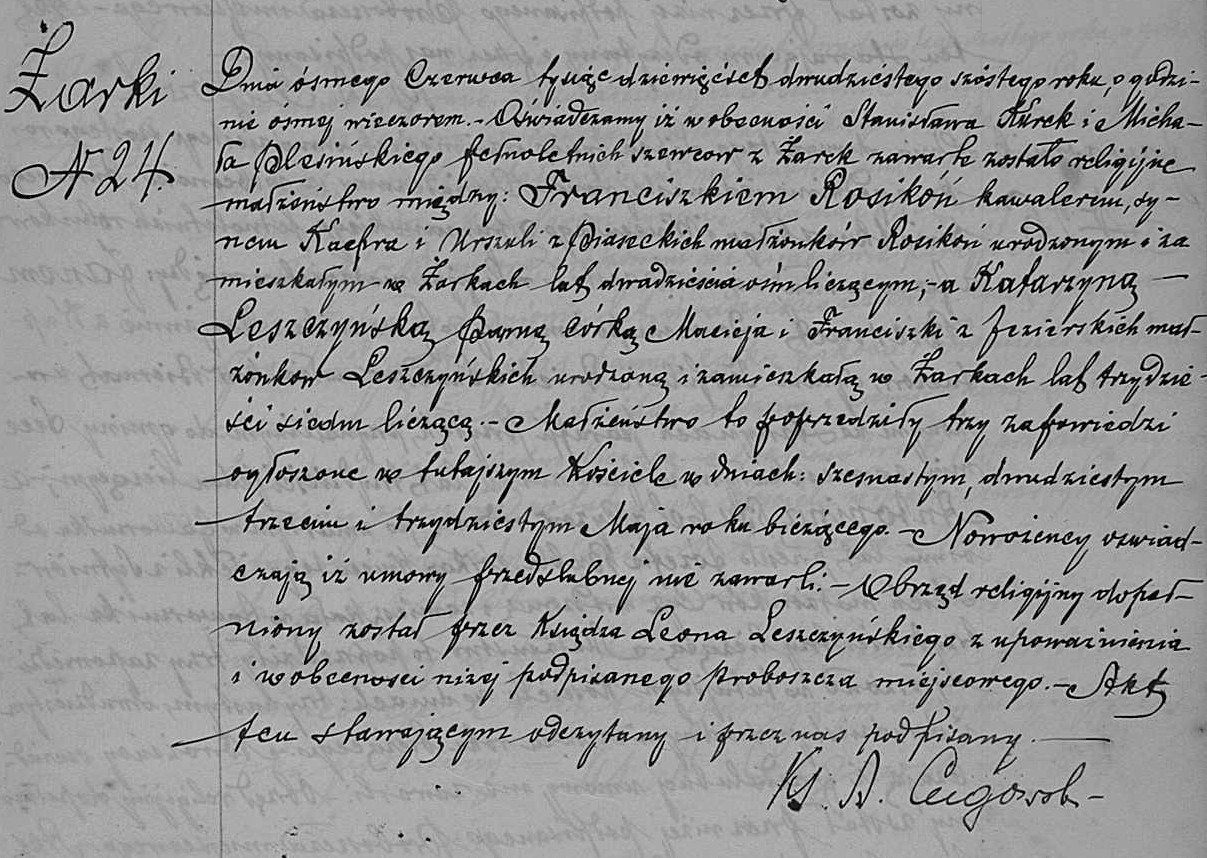 Żarki
N 24.
Dnia ósmego Czerwca tysiąc dziewięćset dwudziestego szóstego roku, o godzi-
nie ósmej wieczorem.- Oświadczamy iż w obecności Stanisława Kurek i Micha-
ła Plesińskiego pełnoletnich szewców z Żarek zawarte zostało religijne
małżeństwo między: Franciszkiem Rosikoń kawalerem, sy-
nem Kacpra i Urszuli z Piaseckich małżonków Rosikoń urodzonym i za
mieszkałym w Żarkach lat dwadzieścia ośm liczącym,- a Katarzyną —
Leszczyńską Panną córką Macieja i Franciszki z Jezierskich mał-
żonków Leszczyńskich urodzoną i zamieszkałą w Żarkach lat trzydzie-
ści siedm liczącą.- Małżeństwo to poprzedziły trzy zapowiedzi
ogłoszone w tutajszym Kościele w dniach: szesnastym, dwudziestym
trzecim i trzydziestym Maja roku bieżącego.- Nowożeńcy oswiad-
czają iż umowy przedslubnej nie zawarli.- Obrzęd religijny dopeł-
niony został przez Księdza Leona Leszczyńskiego z upoważnienia
i w obecności niżej podpisanego Proboszcza miejscowego.- Akt
ten stawającym odczytany i przez nas podpisany.—
Ks. A.